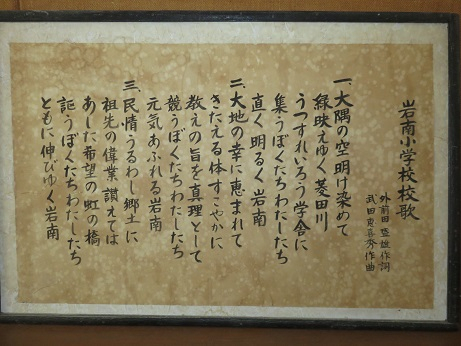 岩南小学校校歌
外前田 盛雄作詞
武田恵喜秀作曲
一、大隅の空明け染めて
緑映えゆく菱田川
うつすれいろう学舎に
集うぼくたちわたしたち
直く明るく岩南
二、大地の幸に恵まれて
きたえる体すこやかに
教えの旨を真理として
競うぼくたちわたしたち
元気あふれる岩南
三、民情うるわし郷土に
祖先の偉業讃えては
あした希望の虹の橋
謳うぼくたちわたしたち
ともに伸びゆく岩南